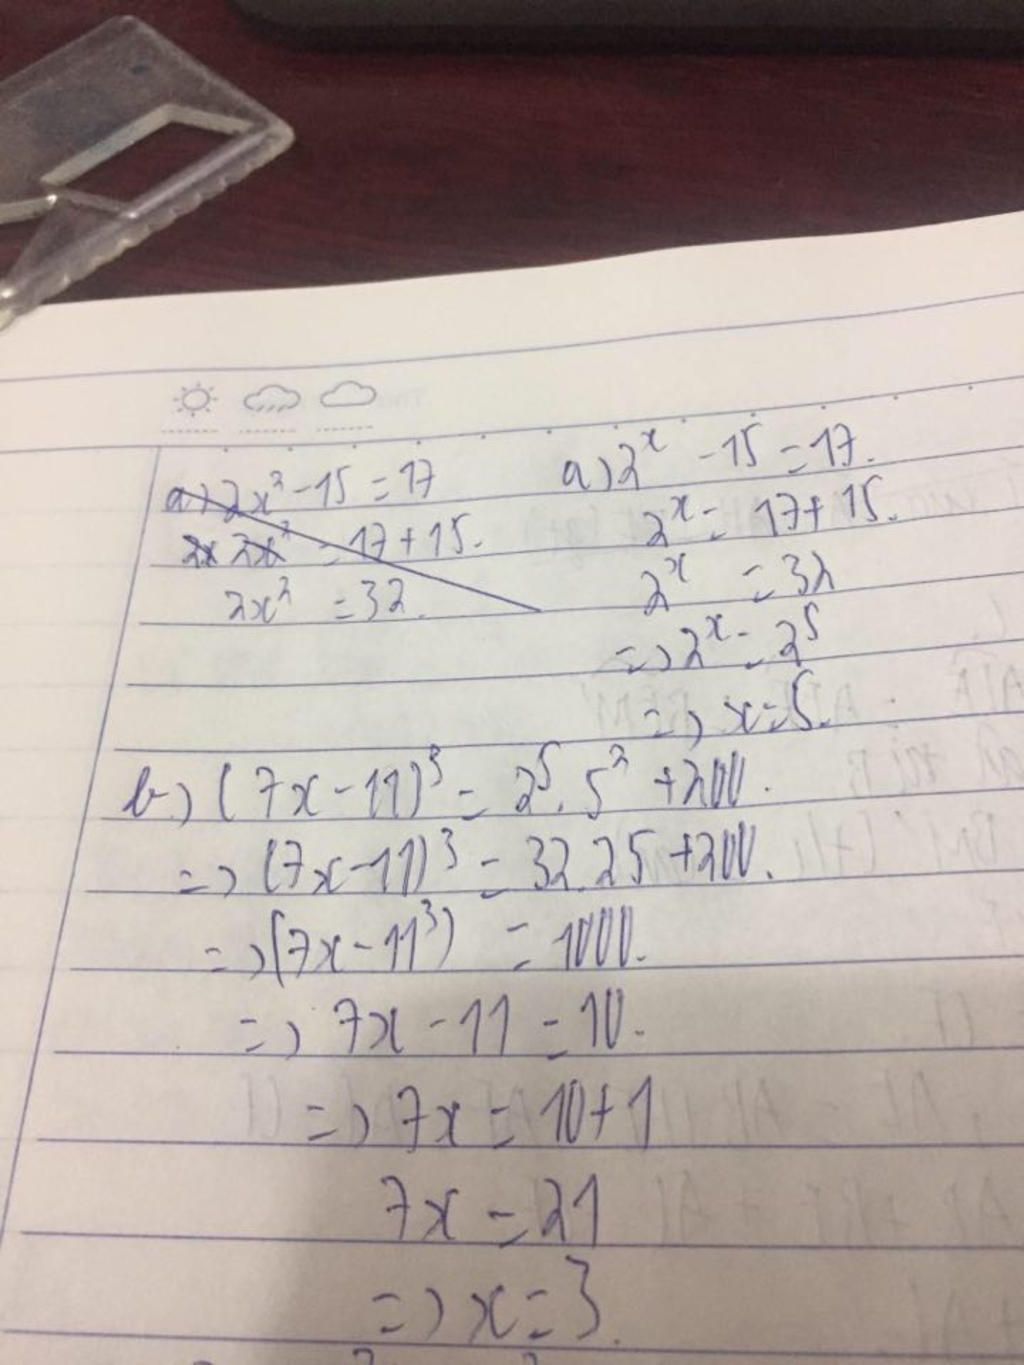 a) 2x² - 15 = 17
2x 2x² = 17 + 15.
2x² = 32.
a) 2ˣ - 15 = 17.
2ˣ = 17 + 15.
2ˣ = 32
=> 2ˣ = 2⁵
=> x = 5.
b) (7x - 11)³ = 2⁵. 5² + 200.
=> (7x - 11)³ = 32.25 + 200.
=> (7x - 11³) = 1000.
=> 7x - 11 = 10.
=> 7x = 10 + 1
7x = 21
=> x = 3.